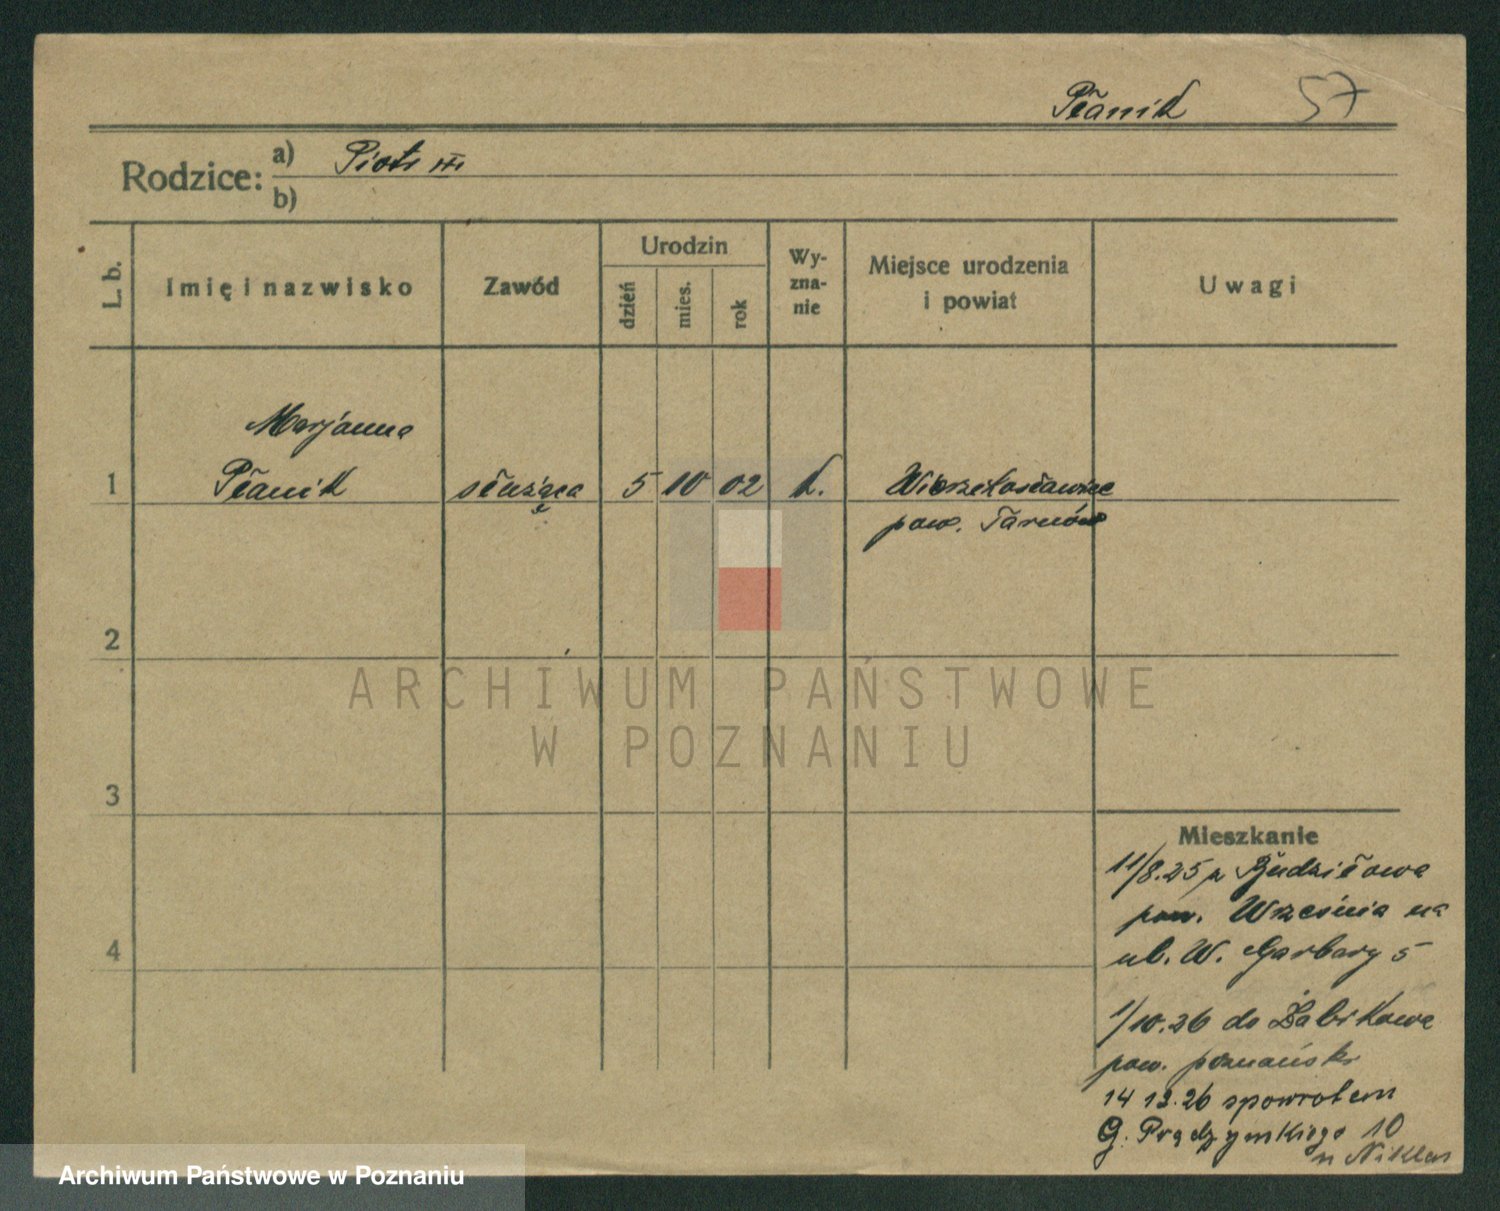 Płanik 57
Rodzice: a) Piotr
b)
L. b.
Imię i nazwisko
Zawód
Urodzin
dzień
mies.
rok
Wy-
zna-
nie
Miejsce urodzenia
i powiat
Uwagi
Marjanna
1 Płanik służąca 5 10 02 k. Wierzchosławice
pow. Tarnów
2
3
4
Mieszkanie
11/8.25 z Budziłowa
pow. Września na
ul. W. Garbary 5
1/10.26 do Żabikowa
pow. poznański
14 12.26 spowrotem
G. Prądzyńskiego 10
u Niklas
ARCHIWUM PAŃSTWOWE
W POZNANIU
Archiwum Państwowe w Poznaniu